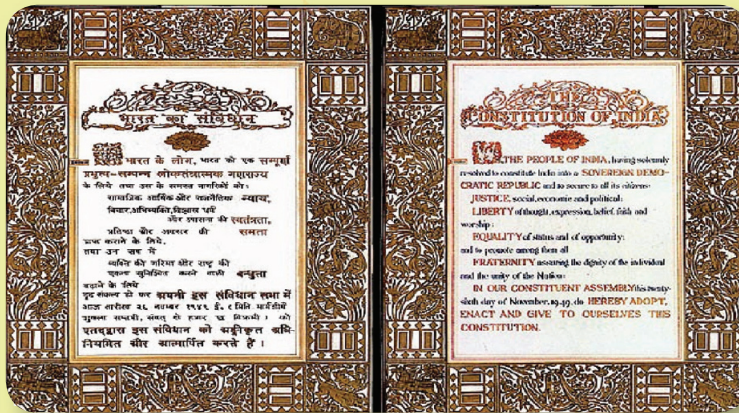 भारत का संविधान
हम भारत के लोग, भारत को एक सम्पूर्ण
प्रभुत्व-सम्पन्न लोकतंत्रात्मक गणराज्य
के लिये तथा उस के समस्त नागरिकों को:
सामाजिक आर्थिक और राजनैतिक न्याय,
विचार, अभिव्यक्ति, विश्वास धर्म
और उपासना की स्वतंत्रता,
प्रतिष्ठा और अवसर की समता
प्राप्त कराने के लिये,
तथा उन सब में
व्यक्ति की गरिमा और राष्ट्र की
एकता सुनिश्चित करने वाली बन्धुता
बढ़ाने के लिये
दृढ़ संकल्प हो कर अपनी इस संविधान सभा में
आज तारीख २६ नवम्बर १९४९ ई. ( मिति मार्गशीर्ष
शुक्ला सप्तमी, संवत् दो हजार छ विक्रमी ) को
एतद्द्वारा इस संविधान को अङ्गीकृत अधि-
नियमित और आत्मार्पित करते हैं ।
THE
CONSTITUTION OF INDIA
WE, THE PEOPLE OF INDIA, having solemnly
resolved to constitute India into a SOVEREIGN DEMO-
CRATIC REPUBLIC and to secure to all its citizens:
JUSTICE, social, economic and political;
LIBERTY of thought, expression, belief, faith and
worship;
EQUALITY of status and of opportunity;
and to promote among them all
FRATERNITY assuring the dignity of the individual
and the unity of the Nation;
IN OUR CONSTITUENT ASSEMBLY this twenty-
sixth day of November, 1949, do HEREBY ADOPT,
ENACT AND GIVE TO OURSELVES THIS
CONSTITUTION.